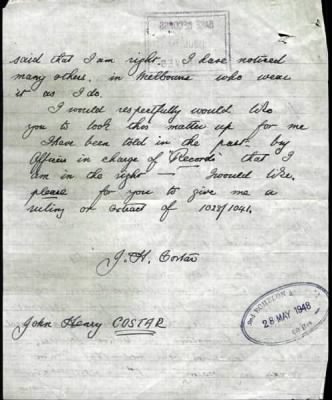 BASE RECORDS
said that I am right. I have noticed
many others. in Melbourne who wear
it as I do.
I would respectfully would like
you to look this matter up for me
I have been told in the past - by
Officer in charge of "Records" that I
am in the right — I would like,
please for you to give me a
ruling or extract of 1028/1041.
J. H. Costar
John Henry COSTAR
2nd ECHELON
28 MAY 1948